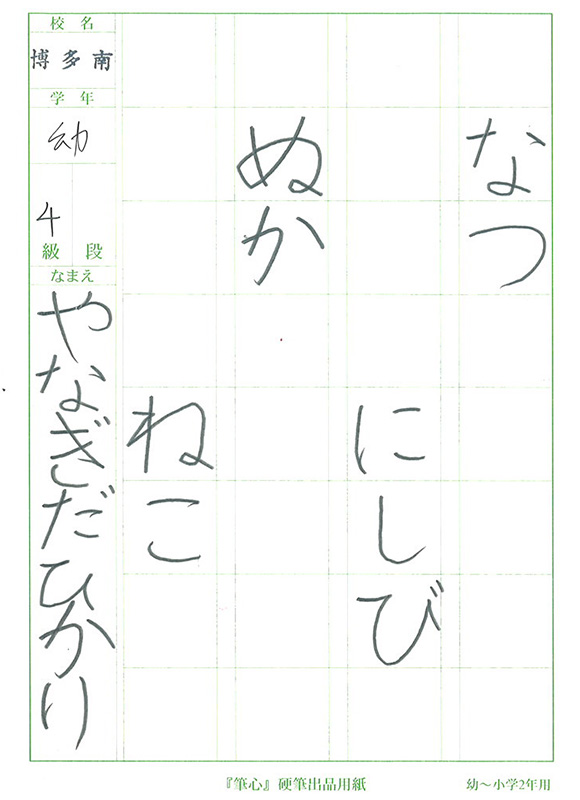 なつ
にしび
ぬか
ねこ
校名
博多南
学年
幼
4
級 段
なまえ
やなぎだひかり
『筆心』硬筆出品用紙
幼〜小学2年用